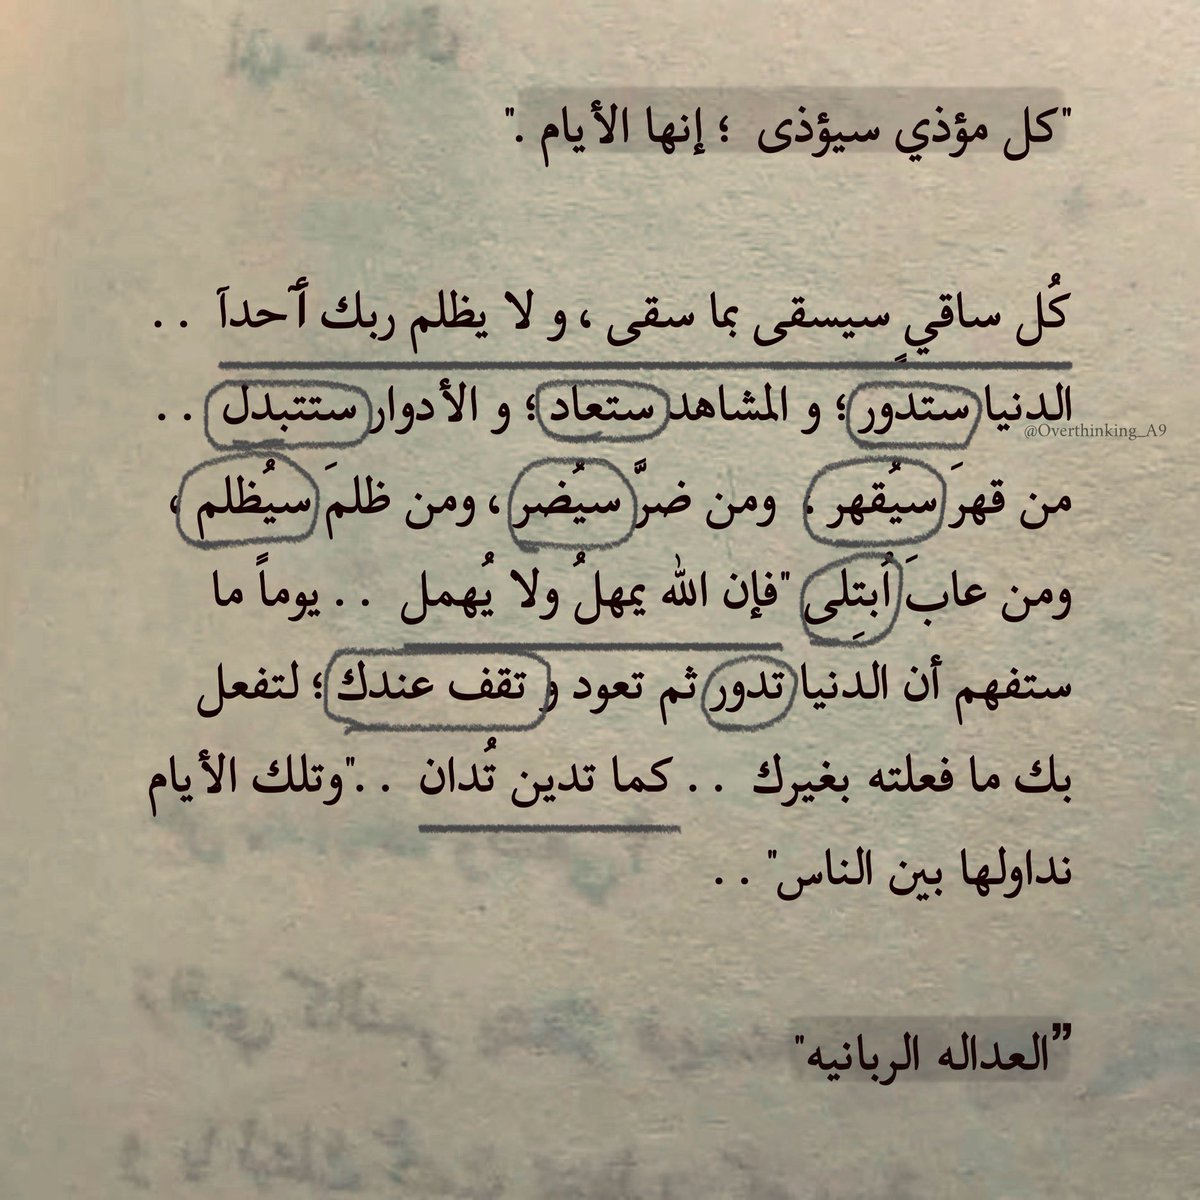 "كل مؤذي سيؤذى ؛ إنها الأيام ."
كُل ساقيٍ سيسقى بما سقى ، و لا يظلم ربك أحداً . .
الدنيا ستدور ؛ و المشاهد ستعاد ؛ و الأدوار ستتبدل . .
@Overthinking_A9
من قهرَ سيُقهر . ومن ضرَّ سيُضر ، ومن ظلمَ سيُظلم ،
ومن عابَ اُبتِلى "فإن الله يمهلُ ولا يُهمل . . يوماً ما
ستفهم أن الدنيا تدور ثم تعود و تقف عندك ؛ لتفعل
بك ما فعلته بغيرك . . كما تدين تُدان . ."وتلك الأيام
نداولها بين الناس" . .
"العداله الربانيه"